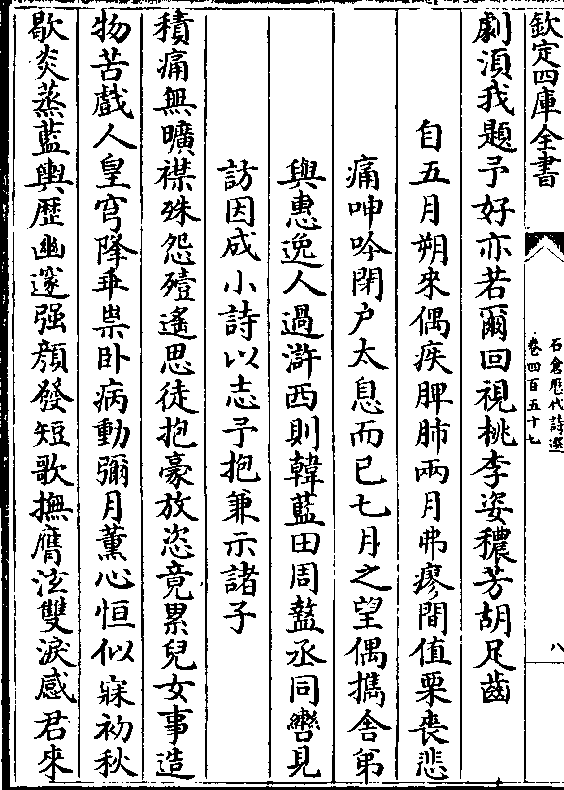 欽定四庫全書
石倉歷代詩選
卷四百五十七
八
劇湏我題予好亦若爾回視桃李姿穠芳胡足齒
自五月朔來偶疾脾肺兩月弗瘳間值栗喪悲
痛呻吟閉户太息而已七月之望偶攜舍弟
與惠逸人過滸西則韓藍田周盩丞同轡見
訪因成小詩以志予抱兼示諸子
積痛無曠襟殊怨殪遙思徒抱豪放恣竟累兒女事造
物苦戲人皇穹降垂祟卧病動彌月薰心恒似寐初秋
歇炎蒸藍輿歴幽邃强顔發短歌撫膺泫雙淚感君來